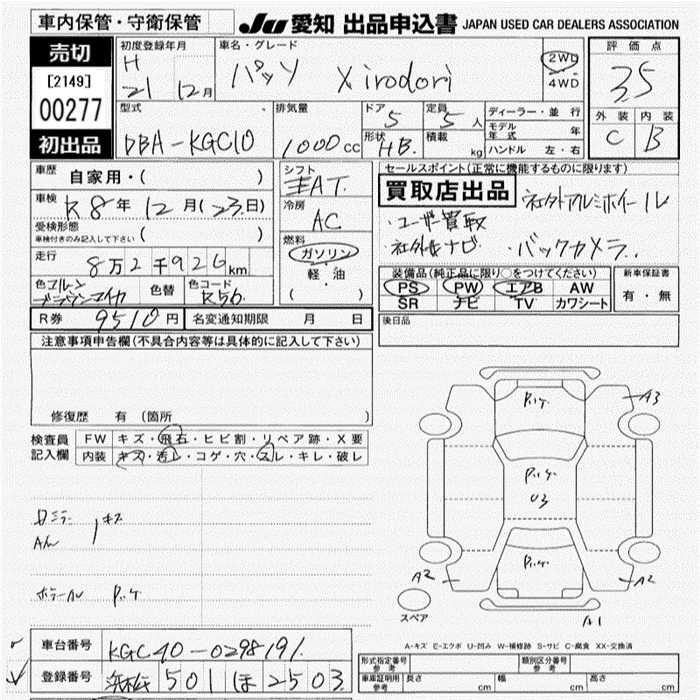 車内保管・守衛保管
JU 愛知 出品申込書 JAPAN USED CAR DEALERS ASSOCIATION
売切
[2149]
00277
初出品
初度登録年月
H
21 12月
車名・グレード
パッソ Xirodori
2WD
4WD
評価点
3.5
外装 内装
C B
型式
DBA-KGC10
排気量
1000cc
ドア
5
定員
5人
形状
H.B.
積載
kg
ディーラー・並行
モデル年式 年
ハンドル 左・右
車歴
自家用・( )
車検
R8年12月(23日)
受検形態
車検付きのみ記入して下さい ( )
走行
8万2千926km
色 マルーンブラウンマイカ
色替
色コード
R56
シフト
AT
冷房
AC
燃料
ガソリン
軽・油
( )
R券 9510円
名変通知期限 月 日
セールスポイント(正常に機能するものに限ります)
買取店出品 社外アルミホイール
・ユーザー買取
・社外ナビ ・バックカメラ
装備品(純正品に限り○をつけてください)
PS PW エアB AW
SR ナビ TV カワシート
新車保証書
有・無
後日品
注意事項申告欄(不具合内容等は具体的に記入して下さい)
修復歴 有(箇所 )
検査員記入欄
FW キズ・飛石・ヒビ割・リペア跡・X要
内装 キズ・汚レ・コゲ・穴・スレ・キレ・破レ
キズ
A3
U3
A2
A2
A1
スペア
A-キズ E-エクボ U-凹み W-補修跡 S-サビ C-腐食 XX-交換済
車台番号 KGC10-0298191
登録番号 浜松 501 ほ 2503
形式指定番号
参考
類別区分番号
参考
車庫証明用
参考
長さ cm
幅 cm
高さ cm